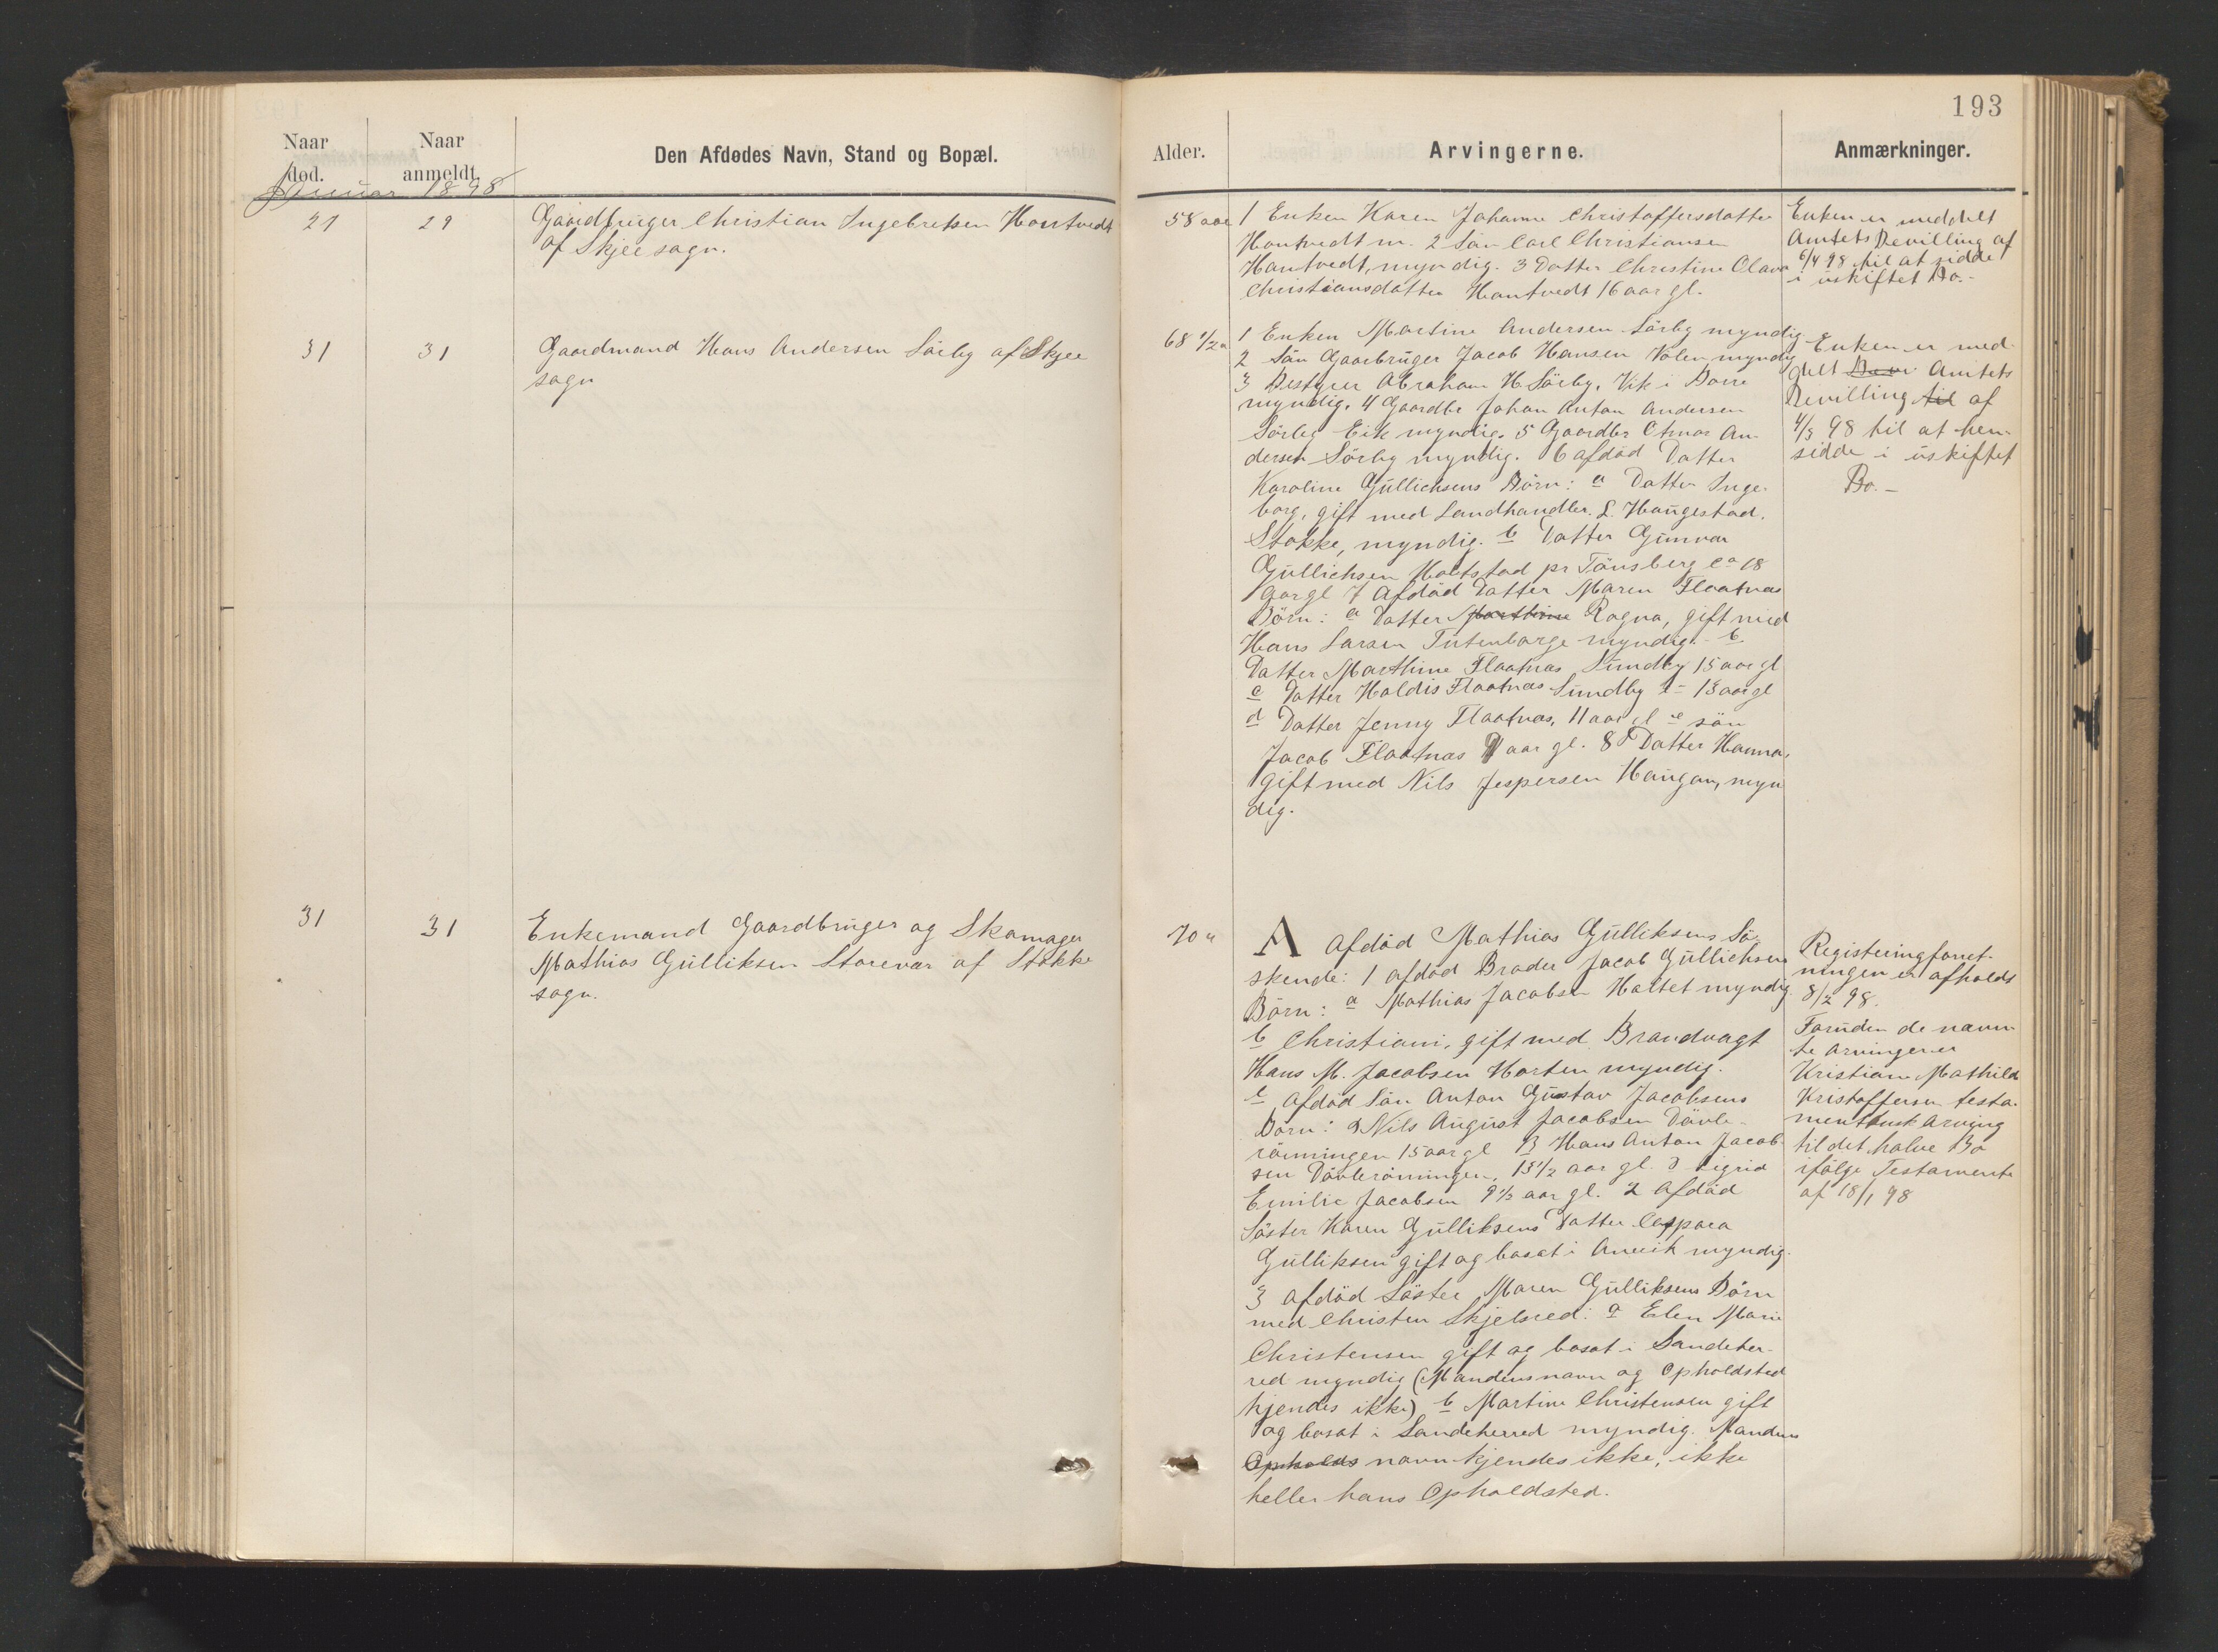 193
Naar
død.
Naar
anmeldt.
Den Afdødes Navn, Stand og Bopæl.
Alder.
Arvingerne.
Anmærkninger.
Januar 1898
21
29
Gaardbruger Christian Ingebretsen Hontvedt
af Skjee sogn.
58 aar
1 Enken Karen Johanne Christoffersdatter
Hontvedt m. 2 Sön Carl Christiansen
Hontvedt, myndig. 3 Datter Christine Olava
Christiansdatter Hontvedt 16 aar gl.
Enken er meddelt
Amtets Bevilling af
6/4 98 til at sidde
i uskiftet Bo.-
31
31
Gaardmand Hans Andersen Sörby af Skjee
sogn
68 1/2 a
1 Enken Martine Andersen Sörby myndig
2 Sön Gaardbruger Jacob Hansen Valen myndig
3 Bestyrer Abraham H. Sörby, Vik i Borre
myndig. 4 Gaardbr Johan Anton Andersen
Sörby Eik myndig. 5 Gaardbr Otmar An-
dersen Sörby myndig. 6 afdöd Datter
Karoline Gullichsens Börn: a Datter Inge-
borg, gift med Landhandler L. Haugestad,
Stokke, myndig. b Datter Gunvor
Gullichsen Holtstad pr Tönsberg ca 18
aar gl 7 Afdöd Datter Maren Flaatnes
Börn: a Datter Marthine Ragna, gift med
Hans Larsen Tutenborge myndig - b
Datter Marthine Flaatnes Sundby 15 aar gl
c Datter Haldis Flaatnes Sundby 13 aar gl
d Datter Jenny Flaatnes, 11 aar gl e sön
Jacob Flaatnes 9 aar gl. 8 Datter Hanna,
gift med Nils Jespersen Haugan, myn
dig.
Enken er med-
delt Bevi Amtets
Bevilling til af
4/3 98 til at hen-
sidde i uskiftet
Bo.-
31
31
Enkemand Gaardbruger og Skomager
Mathias Gulliksen Storevar af Stokke
sogn.
70 a
A Afdöd Mathias Gulliksens Sö-
skende: 1 afdöd Broder Jacob Gullichsens
Börn: a Mathias Jacobsen Holtet myndig
b Christiani, gift med Brandvagt
Hans M. Jacobsen Horten myndig.
c Afdöd Sön Anton Gustav Jacobsens
Börn: α Nils August Jacobsen Dövle-
rönningen 15 aar gl β Hans Anton Jacob-
sen Dövlerönningen, 13 1/2 aar gl. Sigrid
Emilie Jacobsen 9 1/2 aar gl. 2 Afdöd
Söster Karen Gulliksens Datter Caspara
Gulliksen gift og bosat i myndig.
3 Afdöd Söster Maren Gulliksens Börn
med Christen Skjelsred: a Elen Marie
Christensen gift og bosat i Sandeher-
red myndig (Mandens navn og Opholdsted
kjendes ikke) b Martine Christensen gift
og bosat i Sandeherred myndig. Mandens
Opholds navn kjendes ikke, ikke
heller hans Opholdsted.
Registeringforret-
ningen er afholdt
8/2 98.
Foruden de navn-
te Arvinger er
Kristian Mathild
Kristoffersen testa-
mentarisk Arving
til det halve Bo
ifölge Testamente
af 18/1 98